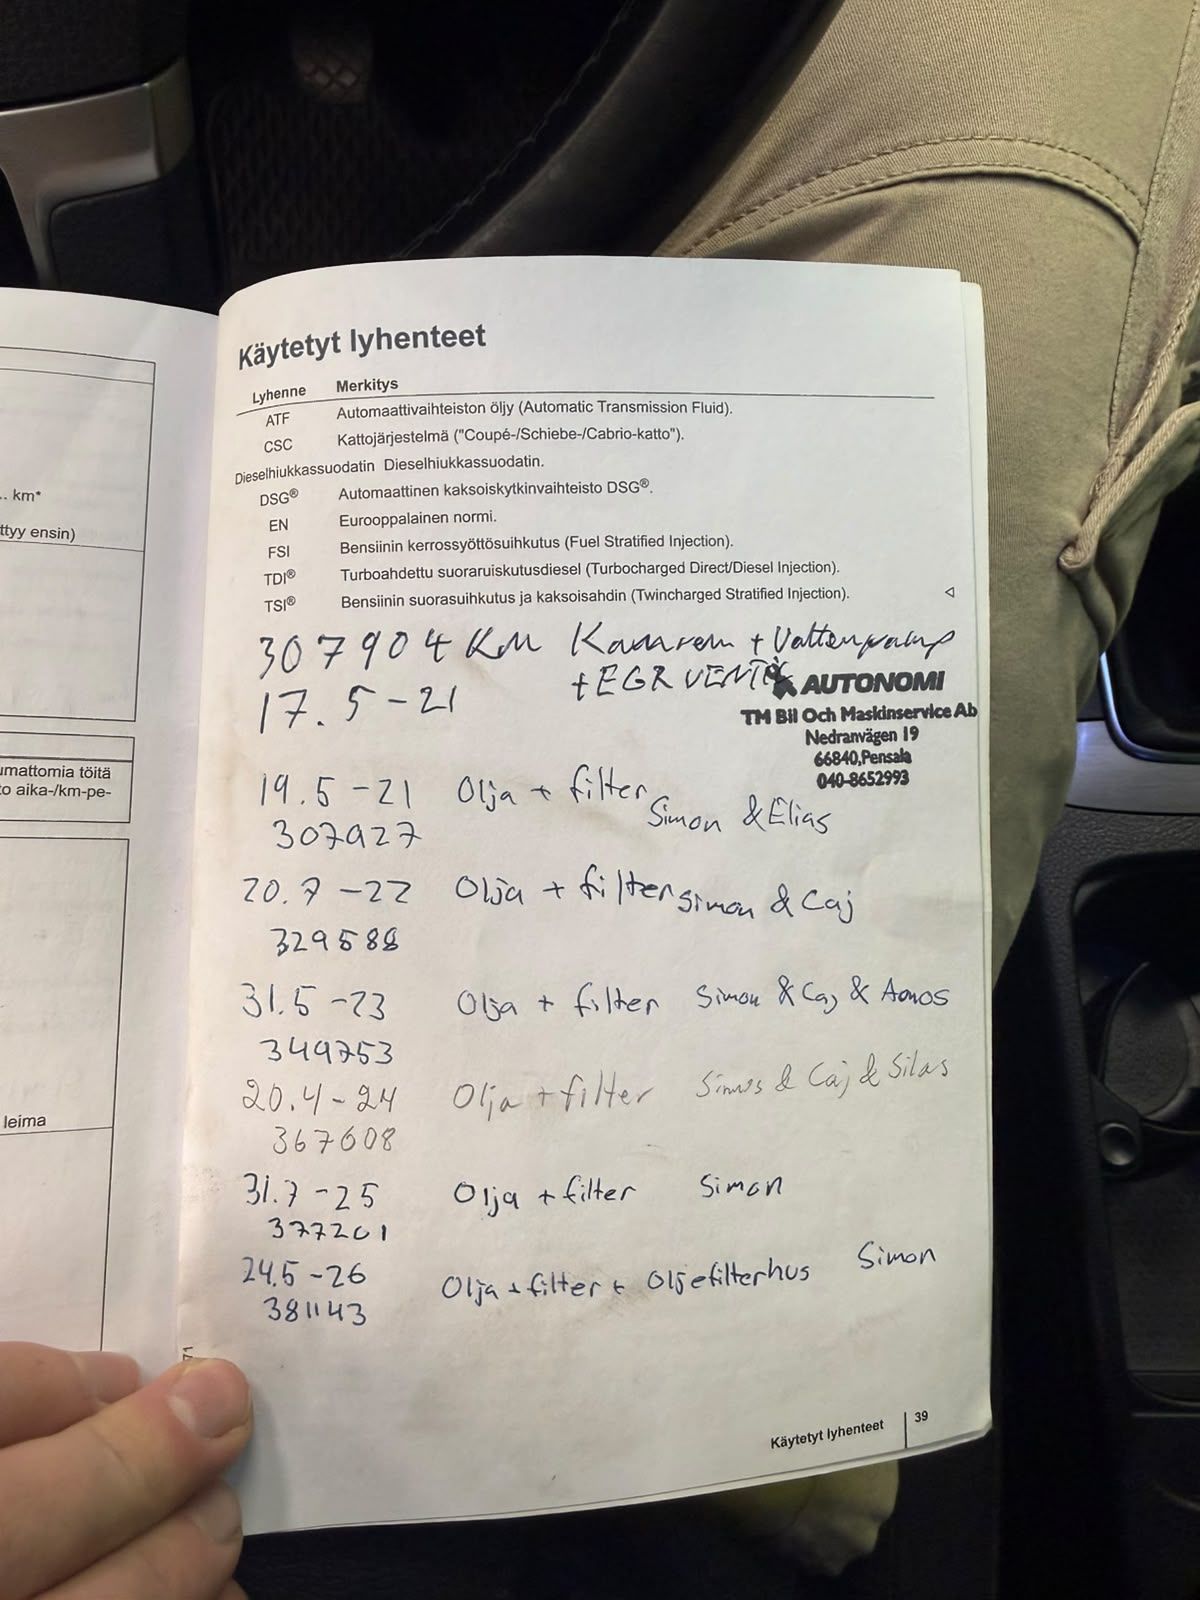 .. km*
ttyy ensin)
umattomia töitä
to aika-/km-pe-
leima
71
Käytetyt lyhenteet
Lyhenne Merkitys
ATF Automaattivaihteiston öljy (Automatic Transmission Fluid).
CSC Kattojärjestelmä ("Coupé-/Schiebe-/Cabrio-katto").
Dieselhiukkassuodatin Dieselhiukkassuodatin.
DSG® Automaattinen kaksoiskytkinvaihteisto DSG®.
EN Eurooppalainen normi.
FSI Bensiinin kerrossyöttösuihkutus (Fuel Stratified Injection).
TDI® Turboahdettu suoraruiskutusdiesel (Turbocharged Direct/Diesel Injection).
TSI® Bensiinin suorasuihkutus ja kaksoisahdin (Twincharged Stratified Injection).
307904 KM Kamrem + Vattenpump
17.5-21 + EGR VENTIL
AUTONOMI
TM Bil Och Maskinservice Ab
Nedranvägen 19
66840,Pensala
040-8652993
19.5-21 Olja + filter Simon & Elias
307927
20.7-22 Olja + filter Simon & Caj
329588
31.5-23 Olja + filter Simon & Caj & Amos
349753
20.4-24 Olja + filter & Caj & Silas
367608
31.7-25 Olja + filter Simon
377201
24.5-26 Olja + filter + Oljefilterhus Simon
381143
Käytetyt lyhenteet 39